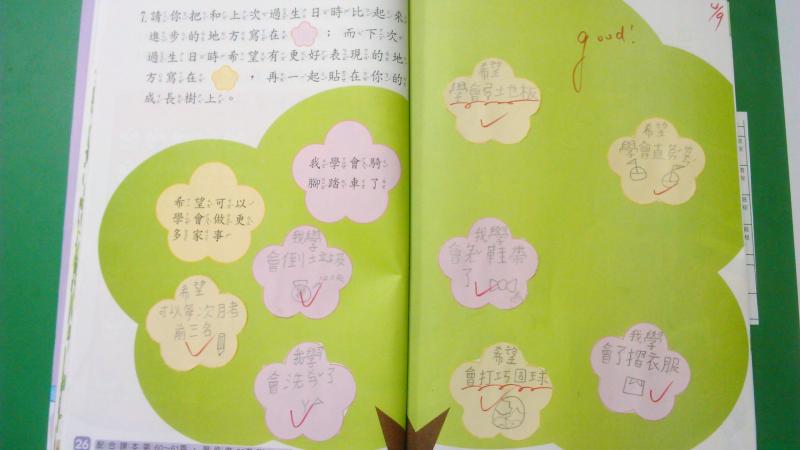 7.請你把和上次過生日時比起來
進步的地方寫在 ；而下次
過生日時希望有更好表現的地
方寫在 ，再一起貼在你的
成長樹上。
我學會騎
腳踏車了
希望可以
學會做更
多家事
我學
會倒垃圾
希望
可以每次月考
前三名
我學
會洗
了
26
配合課本第60~61頁
4/9
good!
希望
學會
板
希望
學會直
我學
會
鞋帶
了
希望
會打巧固球
我學
會了摺衣服